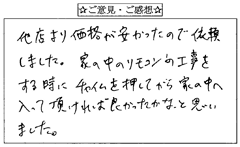 ☆ご意見・ご感想☆
他店より価格が安かったので依頼
しました。家の中のリモコンの工事を
する時にチャイムを押してから家の中へ
入って頂ければ良かったかなと思い
ました。